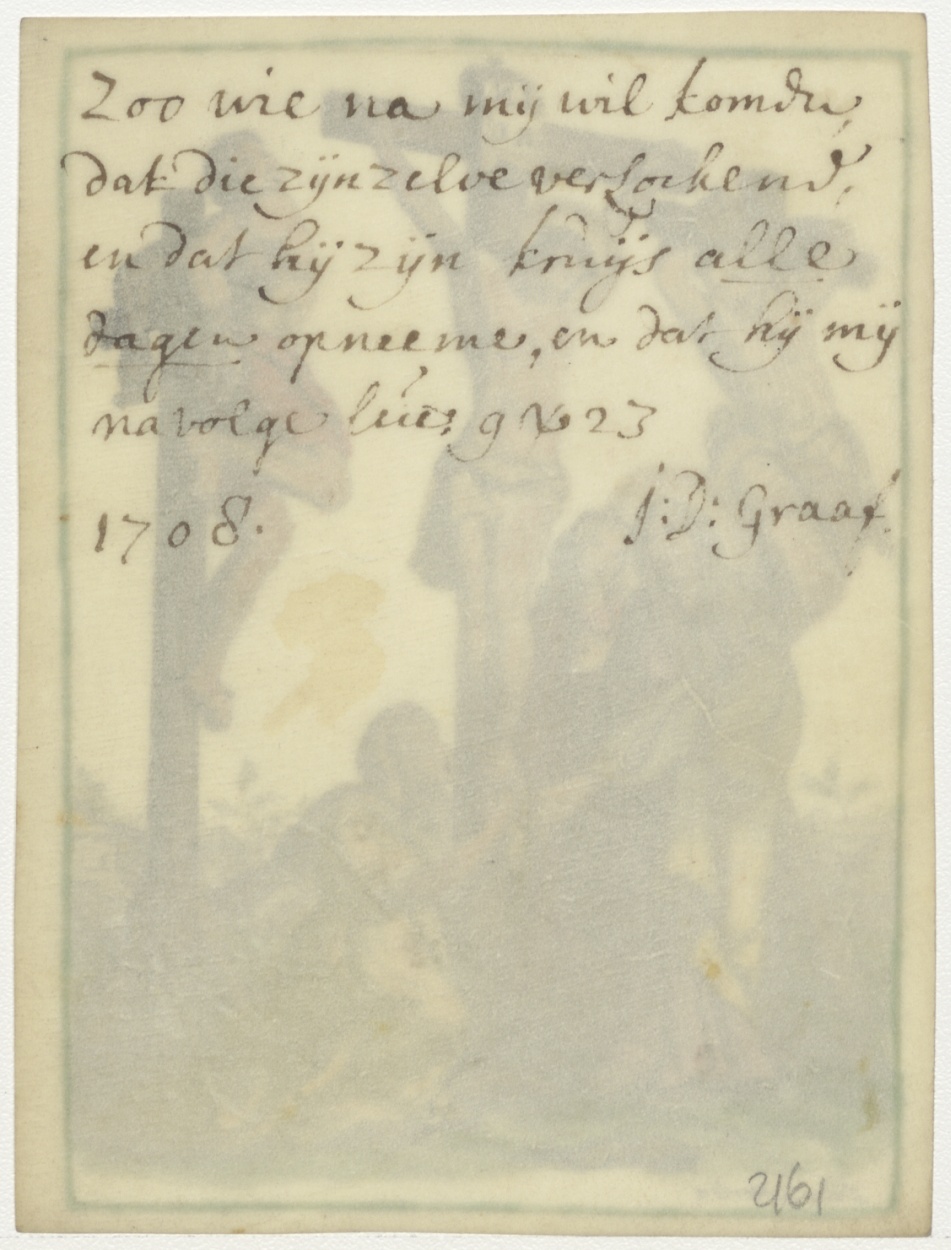 Zoo wie na mij wil komen,
dat die zijnzelve verlochend,
en dat hij zijn kruijs alle
dagen opneeme, en dat hij mij
navolge luc: 9 v 23
1708. J:D: Graaf.
2161